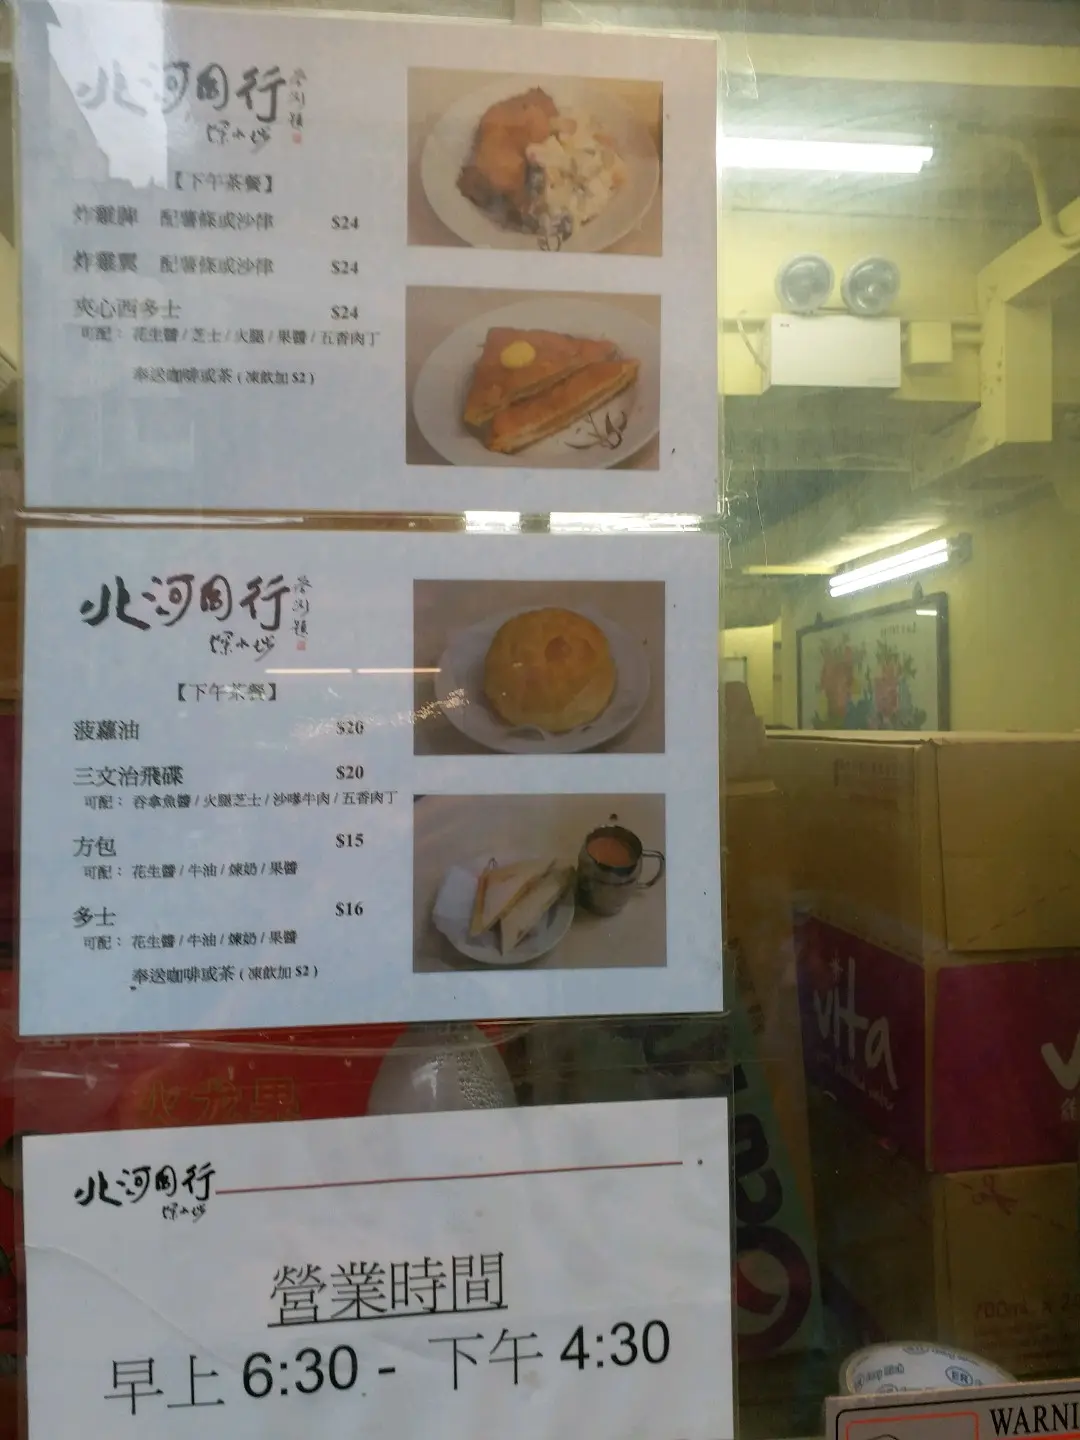 北河同行
深水埗
【下午茶餐】
炸雞脾 配薯條或沙律 $24
炸雞翼 配薯條或沙律 $24
夾心西多士 $24
可配： 花生醬 / 芝士 / 火腿 / 果醬 / 五香肉丁
奉送咖啡或茶 ( 凍飲加 $2 )
北河同行
深水埗
【下午茶餐】
菠蘿油 $20
三文治飛碟 $20
可配： 吞拿魚醬 / 火腿芝士 / 沙嗲牛肉 / 五香肉丁
方包 $15
可配： 花生醬 / 牛油 / 煉奶 / 果醬
多士 $16
可配： 花生醬 / 牛油 / 煉奶 / 果醬
奉送咖啡或茶 ( 凍飲加 $2 )
火龙果
vita
北河同行
深水埗
營業時間
早上 6:30 - 下午 4:30
WARNI